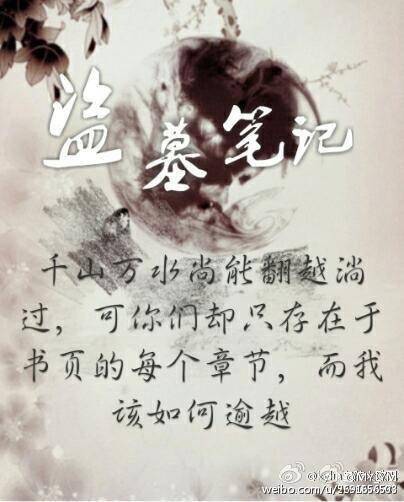 盗墓笔记
千山万水尚能翻越淌
过，可你们却只存在于
书页的每个章节，而我
该如何逾越